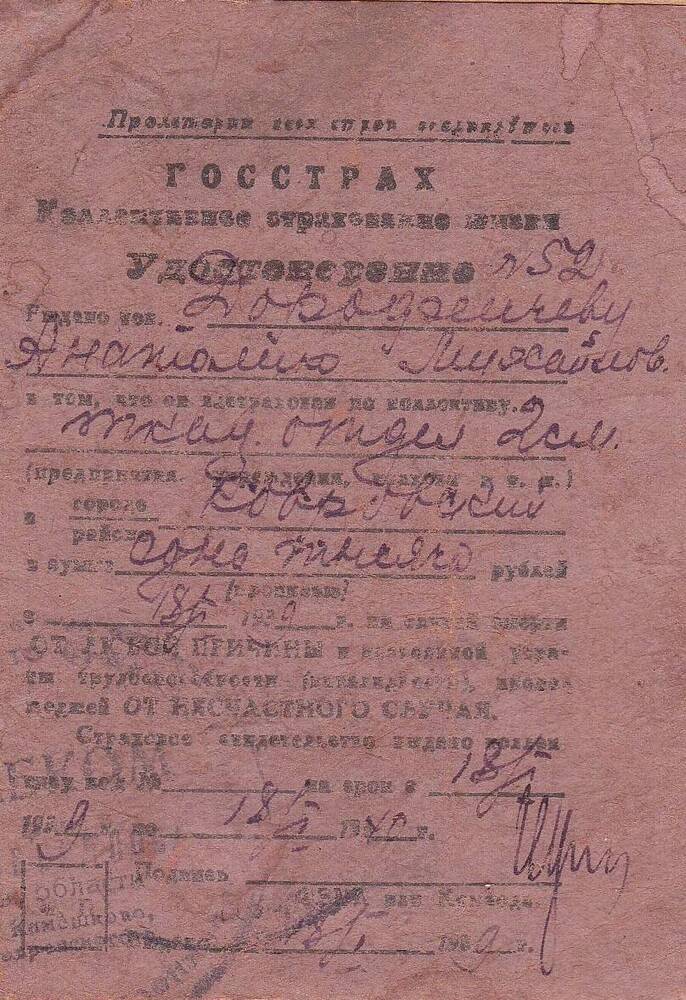 Пролетарии всех стран соединяйтесь
ГОССТРАХ
Коллективное страхование жизни
Удостоверение N 52
Выдано тов. Дорофеичеву
Анатолию Михайлов.
в том, что он застрахован по коллективу.
ткац. отдел 2 см.
(предприятия, учреждения, колхозы и т. п.)
в городе
районе Ковровский
в сумме одна тысяча рублей
(прописью)
с 18/I 1939 г. на случай смерти
ОТ ЛЮБОЙ ПРИЧИНЫ и постоянной утра-
ты трудоспособности (инвалидности), проис-
шедшей ОТ НЕСЧАСТНОГО СЛУЧАЯ.
Страховое свидетельство выдано коллек
тиву под № на срок с 18/I
1939 г. по 18/I 1940 г.
Подпись
или Комсода.
области
Камешково,
18/I 1939 г.